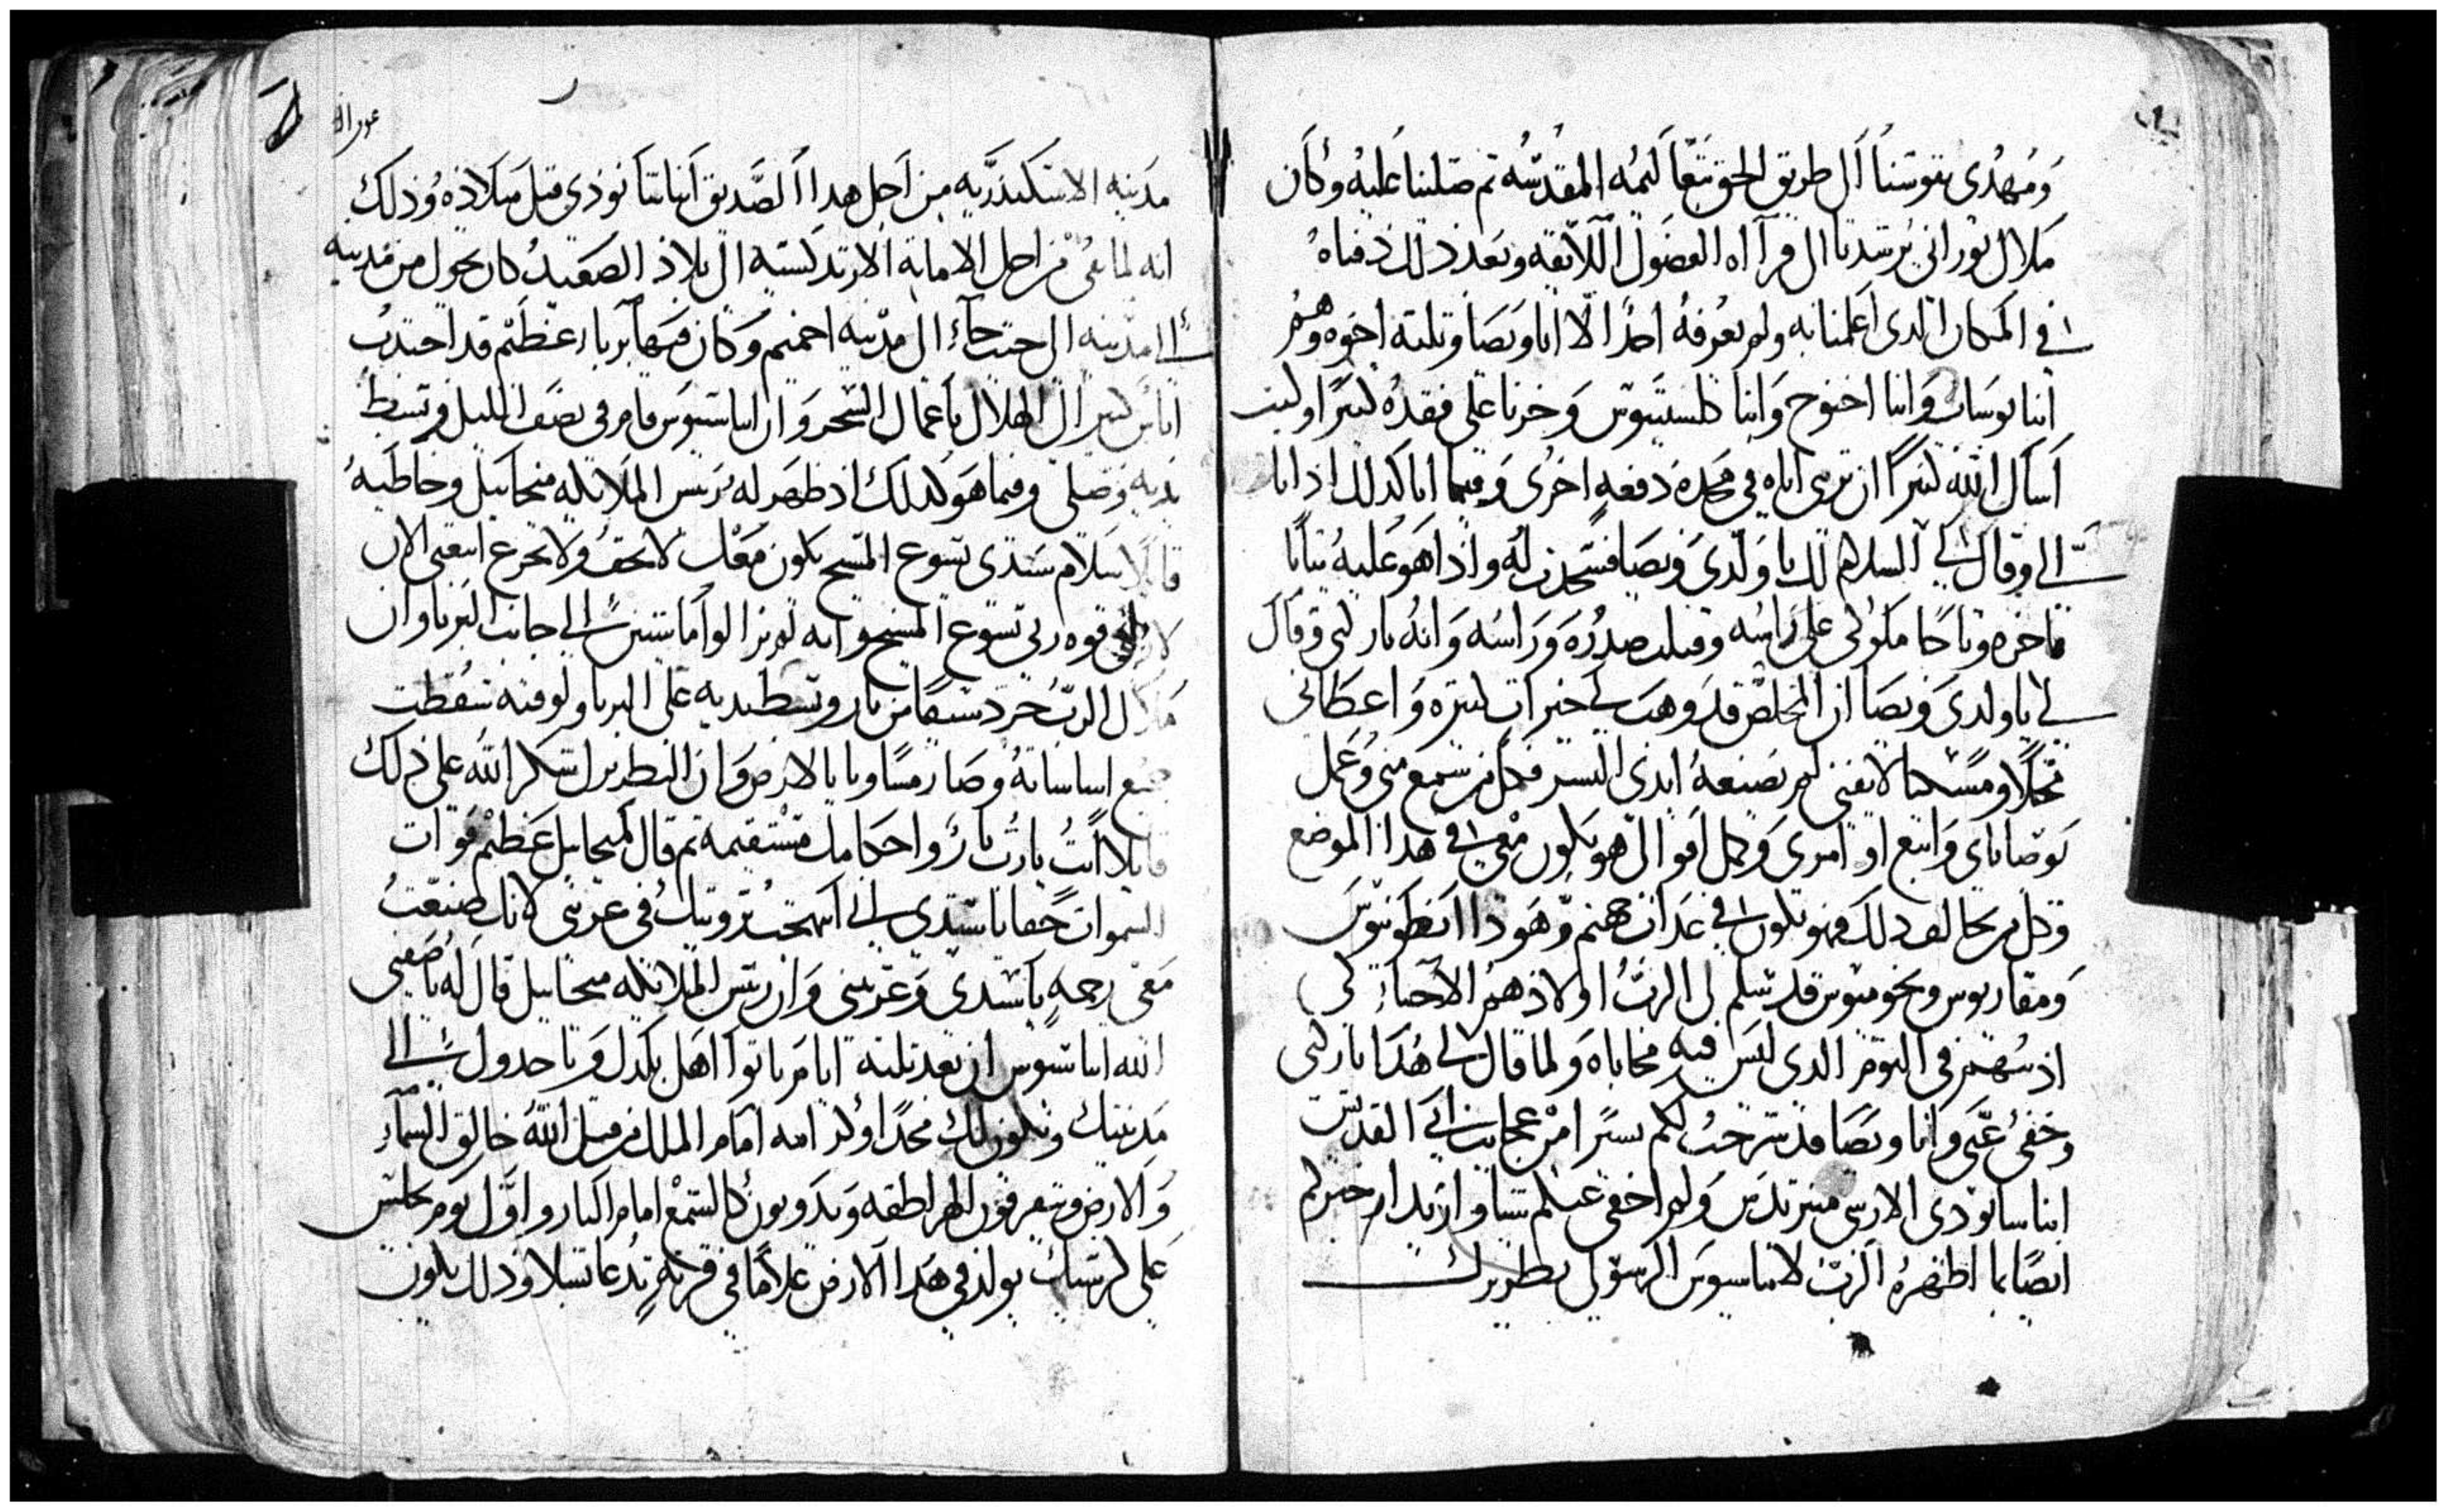 ومهدي نفوسنا الى طريق الحق بتعاليمه المقدسه ثم صلينا عليه وكان
ملاك نوراني يرشدنا الى قرآاه الفصول اللايقه وبعد ذلك دفناه
في المكان الدي اعلمنا به ولم يعرفه احدًا الا انا ويصا وتلته اخوه وهم
انبا يوساب وانبا اخنوخ وانبا كلستينوس وحزنا على فقده كثيرًا وكنت
اسال الله كثيرًا ان نرى اباه في مجده دفعه اخرى وفيما انا كدلك اذ انا
الي وقال لي السلام لك يا ولدي ويصا فسجدت له واذا هو عليه تيابًا
فاخره وتاجًا ملوكي على راسه وقبلت صدره وراسه وانه باركني وقال
لي يا ولدي ويصا ان المخلص قد وهب لي خيرات كثيره واعطاني
محلًا ومسكنا لا يفنى لم تصنعه ايدي البشر فكل من سمع مني وعمل
بوصاياي واتبع اوامري وكمل اقوالي هو يكون معي في هدا الموضع
وكل من يخالف دلك فهو يكون في عداب جهنم وهودا انطونيوس
ومقاريوس وبخوميوس قد سلم لي الرب اولادهم الاحباء لكي
ادينهم في اليوم الدي ليس فيه محاباه ولما قال لي هدا باركني
وخفي عني وانا ويصا قد شرحت لكم يسيرًا من عجايب ابي القديس
انبا سانودي الارشي مندريدس ولم اخفي عنكم شيًا واريد ان اخبركم
ايضًا بما اظهره الرب لاتناسيوس الرسولي بطريرك
مدينه الاسكندريه من اجل هدا الصديق انبا شانودي قبل ميلاده وذلك
انه لما نفي من اجل الامانه الارتدكسيه الى بلاد الصعيد كان يجول من مدينه
الى مدينه الى حيت جاء الى مدينه اخميم وكان فيها بربا عظيم قد اجتدب
اناس كتير الى الهلاك باعمال السحر وان اتناسيوس قام في نصف الليل وبسط
يديه وصلى وفيما هو كدلك اذ ظهر له رييس الملايكه ميخاييل وخاطبه
قايلا سلام سيدي يسوع المسيح يكون معك لا تخف ولا تجزع اتبعني الان
قوه ربي يسوع المسيح وانه لم يزالوا ماشيين الى جانب البربا وان
ملاك الرب جرد سيفًا من نار وبسط يديه على البربا ولوقته سقطت
جميع اساساته وصار مساويا بالارض وان البطريرك شكر الله على ذلك
قايلا انت يا رب بار واحكامك مستقيمه تم قال لميخاييل عظيم قوات
السموات حقا يا سيدي اني استحقيت رويتك في غربتي لانك صنعت
معي رحمه يا سيدي وعزيتني وان رييس الملايكه ميخاييل قال له يا صفي
الله اتناسيوس ان بعد تلته ايام ياتوا اهل بلدك وياخدوك الى
مدينتك ويكون لك مجدًا وكرامه امام الملك من قبل الله خالق السماء
والارض ويتفرقون الهراطقه ويدوبون كالشمع امام النار واول يوم تجلس
على كرسيك يولد في هدا الارض غلامًا في قريه تدعا شنلا وذلك يكون